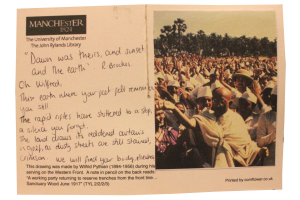 MANCHESTER
1824
The University of Manchester
The John Rylands Library
"Dawn was theirs, and sunset
and the earth" R. Brooke.
Oh Wilfred.
Then earth where your feet fell remembers
you still
The rapid rifles have stuttered to a stop,
a silence you forgot.
The land draws its reddened curtains
dusty sheets are still stained,
crimson. We will find your body
This drawing was made by Wilfrid Pyman (1894-1950) during his
serving on the Western Front. A note in pencil on the back reads
"A working party returning to reserve trenches from the front line
Sanctuary Wood June 1917" (TYL 2/2/2/9)
Printed by zooflower.co.uk